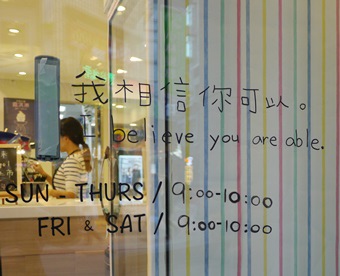 我相信你可以。
I believe you are able.
SUN THURS / 9:00-10:00
FRI & SAT / 9:00-10:00